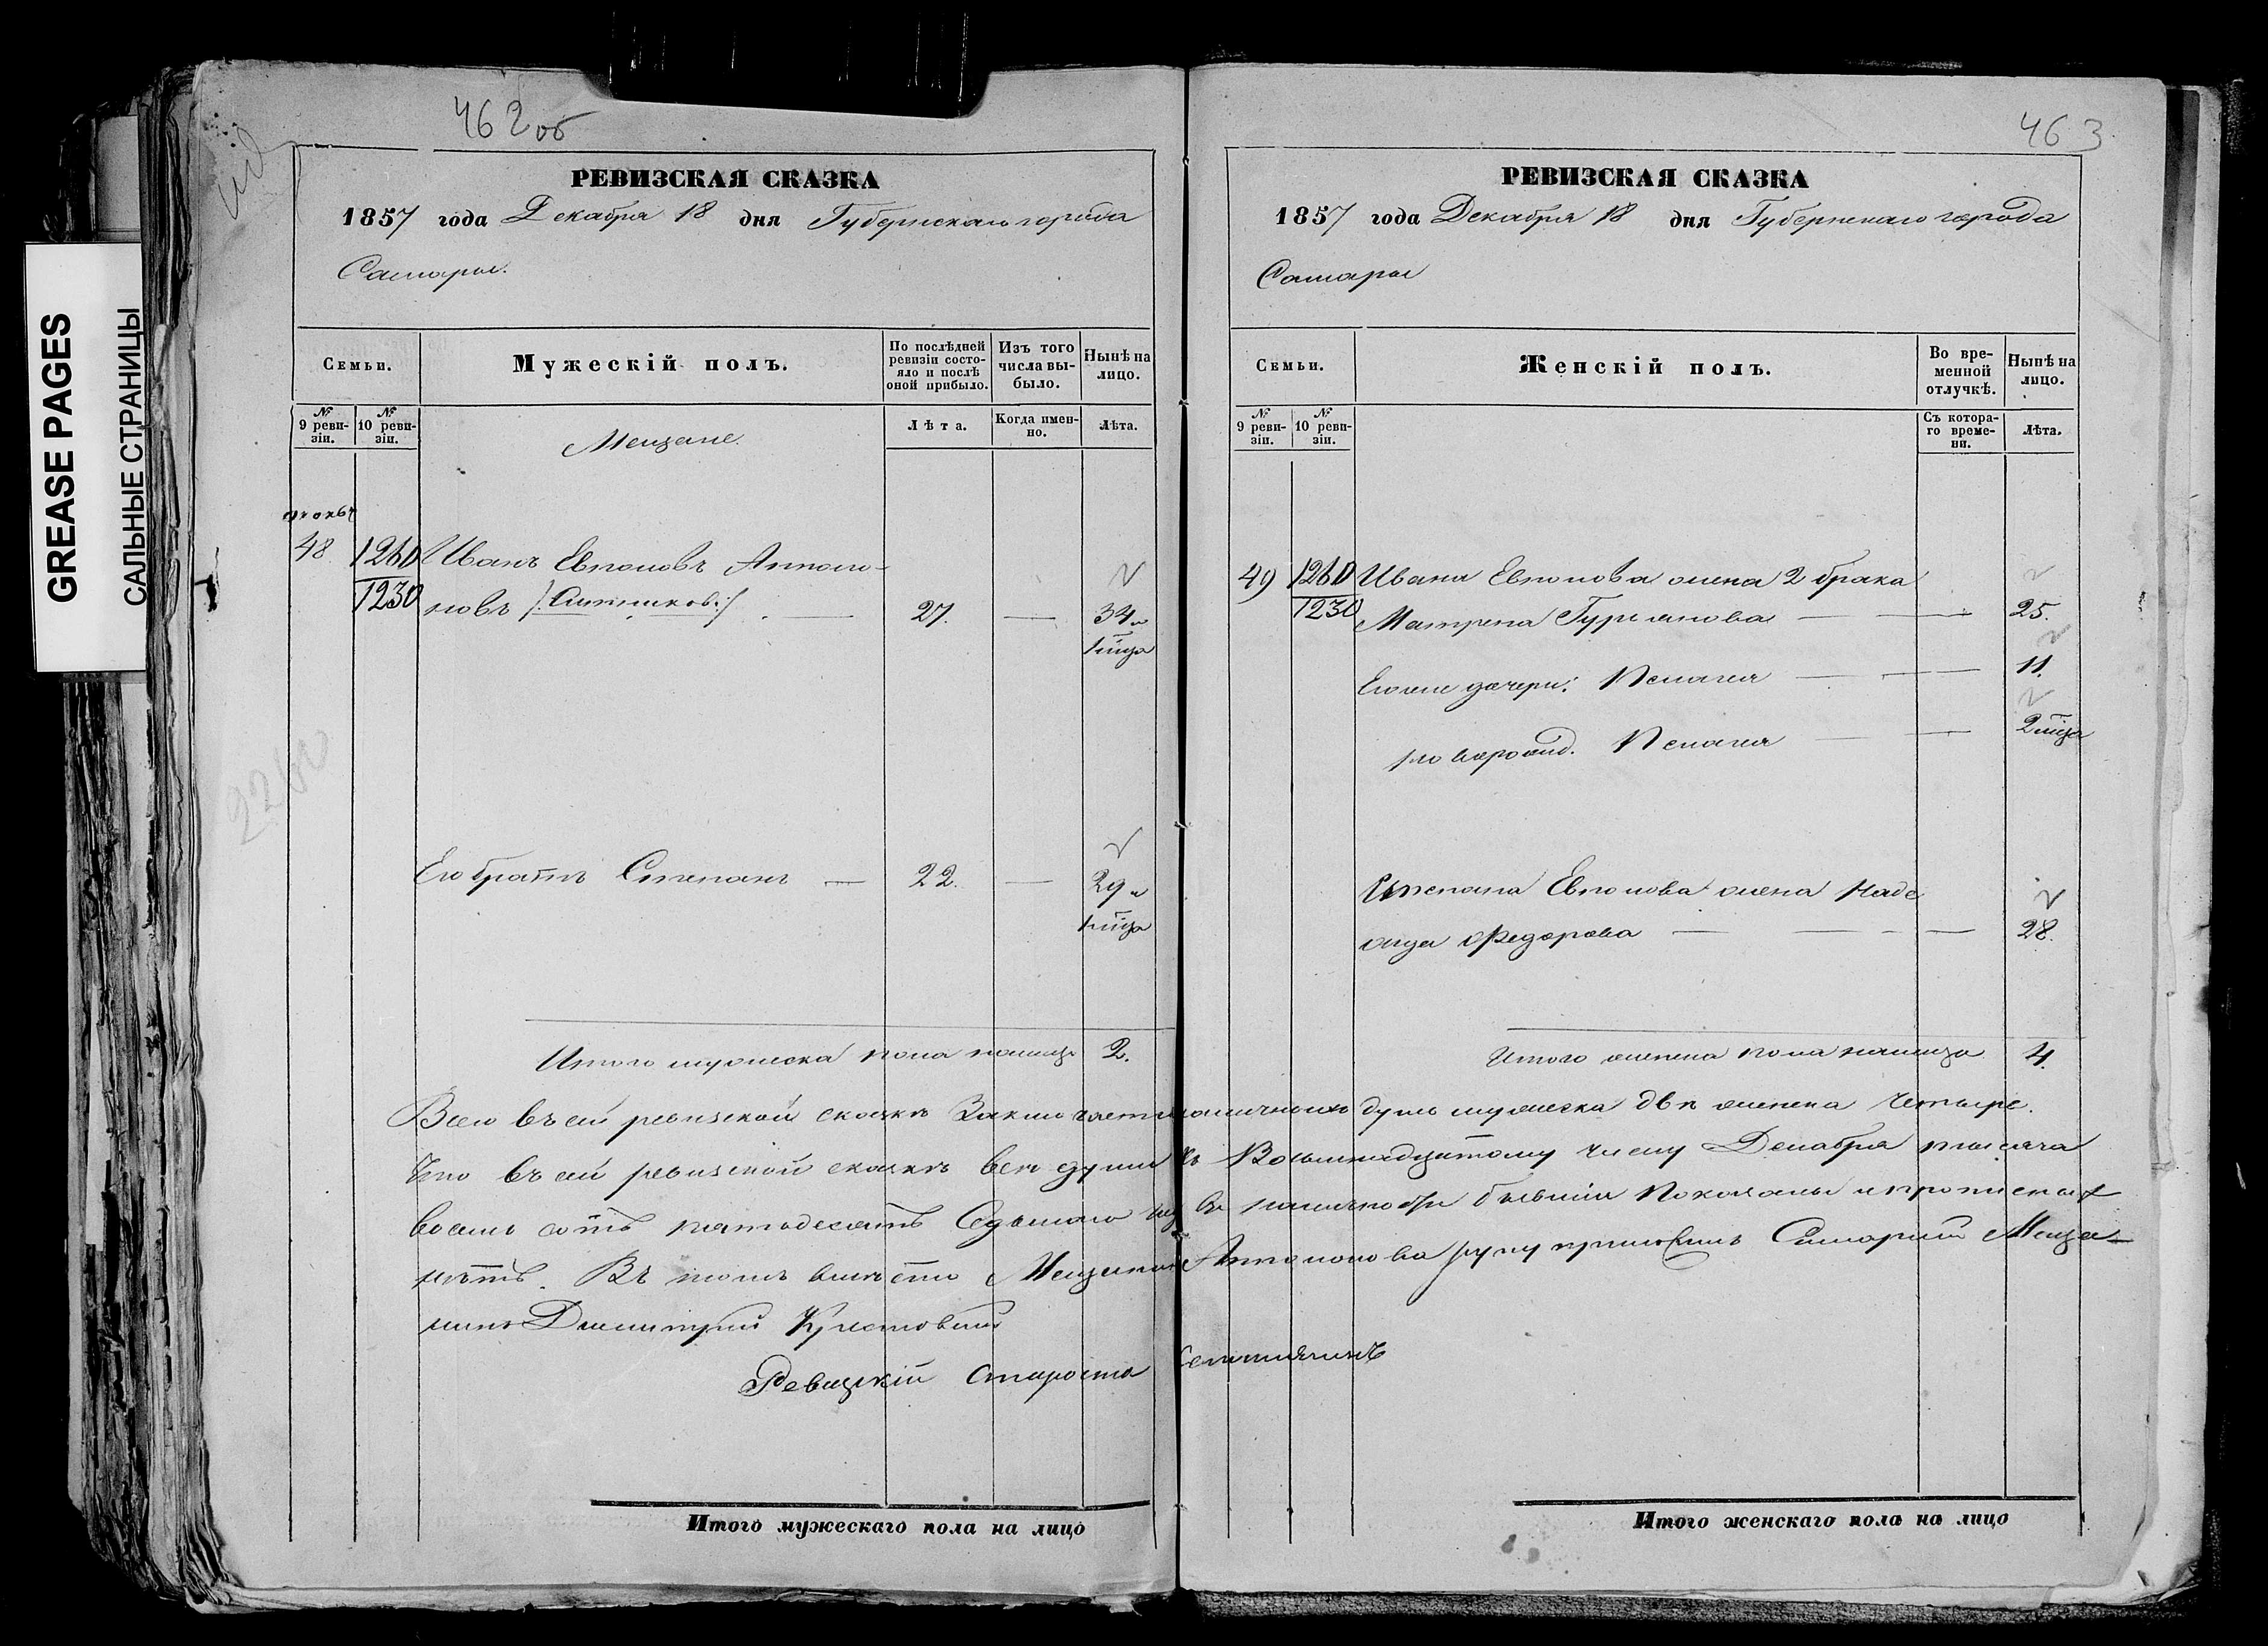 GREASE PAGES
САЛЬНЫЕ СТРАНИЦЫ
462 об
РЕВИЗСКАЯ СКАЗКА
1857 года Декабря 18 дня Губернскаго города
Самары.
Семьи.
Мужескій полъ.
По послѣдней ревизіи состояло и послѣ оной прибыло.
Изъ того числа выбыло.
Нынѣ на лицо.
№ 9 ревизіи.
№ 10 ревизіи.
Мещане.
Лѣта.
Когда именно.
Лѣта.
48. 1260 Иванъ Евпловъ Антоно-
1230 новъ /: Ситников :/ — 27. — 34 и
1 м̃ца
Его братъ Степанъ — 22. — 29 и
1 м̃ца
Итого мужеска пола налицо 2.
463
РЕВИЗСКАЯ СКАЗКА
1857 года Декабря 18 дня Губернскаго города
Самары
Семьи.
Женскій полъ.
Во временной отлучкѣ.
Нынѣ на лицо.
№ 9 ревизіи.
№ 10 ревизіи.
Съ котораго времени.
Лѣта.
49 1260 Ивана Евплова жена 2 брака
1230 Матрена Гурьянова — 25.
Его же дочери: Пелагея — 11.
новорожд. Пелагея — 2 м̃ца
Степана Евплова жена Наде
жда Федорова — 28.
Итого женска пола налицо 4.
Всего въ сей ревизской сказкѣ Заключается наличныхъ душъ мужеска двѣ женска четыре.
Что въ сей ревизской сказкѣ всѣ души къ Восьмнадцатому числу Декабря тысяча
восемь сотъ пятьдесятъ Седьмаго года въ наличности бывшіи показаны и прописныхъ
нѣтъ. Въ томъ вмѣсто Мещанина Антонова руку приложилъ Самарскій Меща-
нинъ Дмитрій
Ревизскій Староста
Итого мужескаго пола на лицо
Итого женскаго пола на лицо